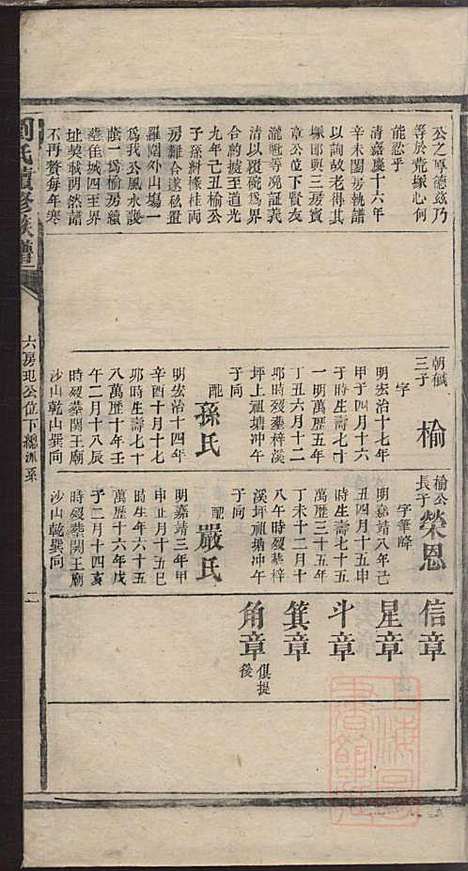 公之厚德茲乃
等於荒塚心何
能忍乎
清嘉慶十六年
辛未闔房執譜
以詢故老得其
塚即與三房賓
章公位下賢友
瀧甡等挽證義
清以覆碗為界
合約披至道光
九年己酉榆公
子孫紏椽桂兩
房雜合遂砥置
羅圍外山塲一
為我公風水護
蔭一為榆房續
塟佳城四至界
址契載朗然譜
不再贅每年寒
朝楲
三子
榆
字
明宏治十七年
甲子四月十六
子時生壽七十
一明萬曆五年
丁丑六月十二
邜時歿塟梓溪
坪上祖塘冲午
子向
配
孫氏
明宏治十四年
辛酉十月十七
邜時生壽七十
八萬曆十年壬
午二月十八辰
時歿塟関王廟
沙山乾山巽向
榆公
長子
榮恩
字筆峰
明嘉靖八年己
丑四月十五申
時生壽七十九
萬曆三十五年
丁未十二月十
八午時歿塟梓
溪坪祖塘冲午
子向
配
嚴氏
明嘉靖三年甲
申正月十五巳
時生年六十五
萬曆十六年戊
子二月十四亥
時歿塟関王廟
沙山乾巽向
信章
星章
斗章
箕章
角章
俱提
後
劉氏續修族譜
六房玘公位下總派系
二